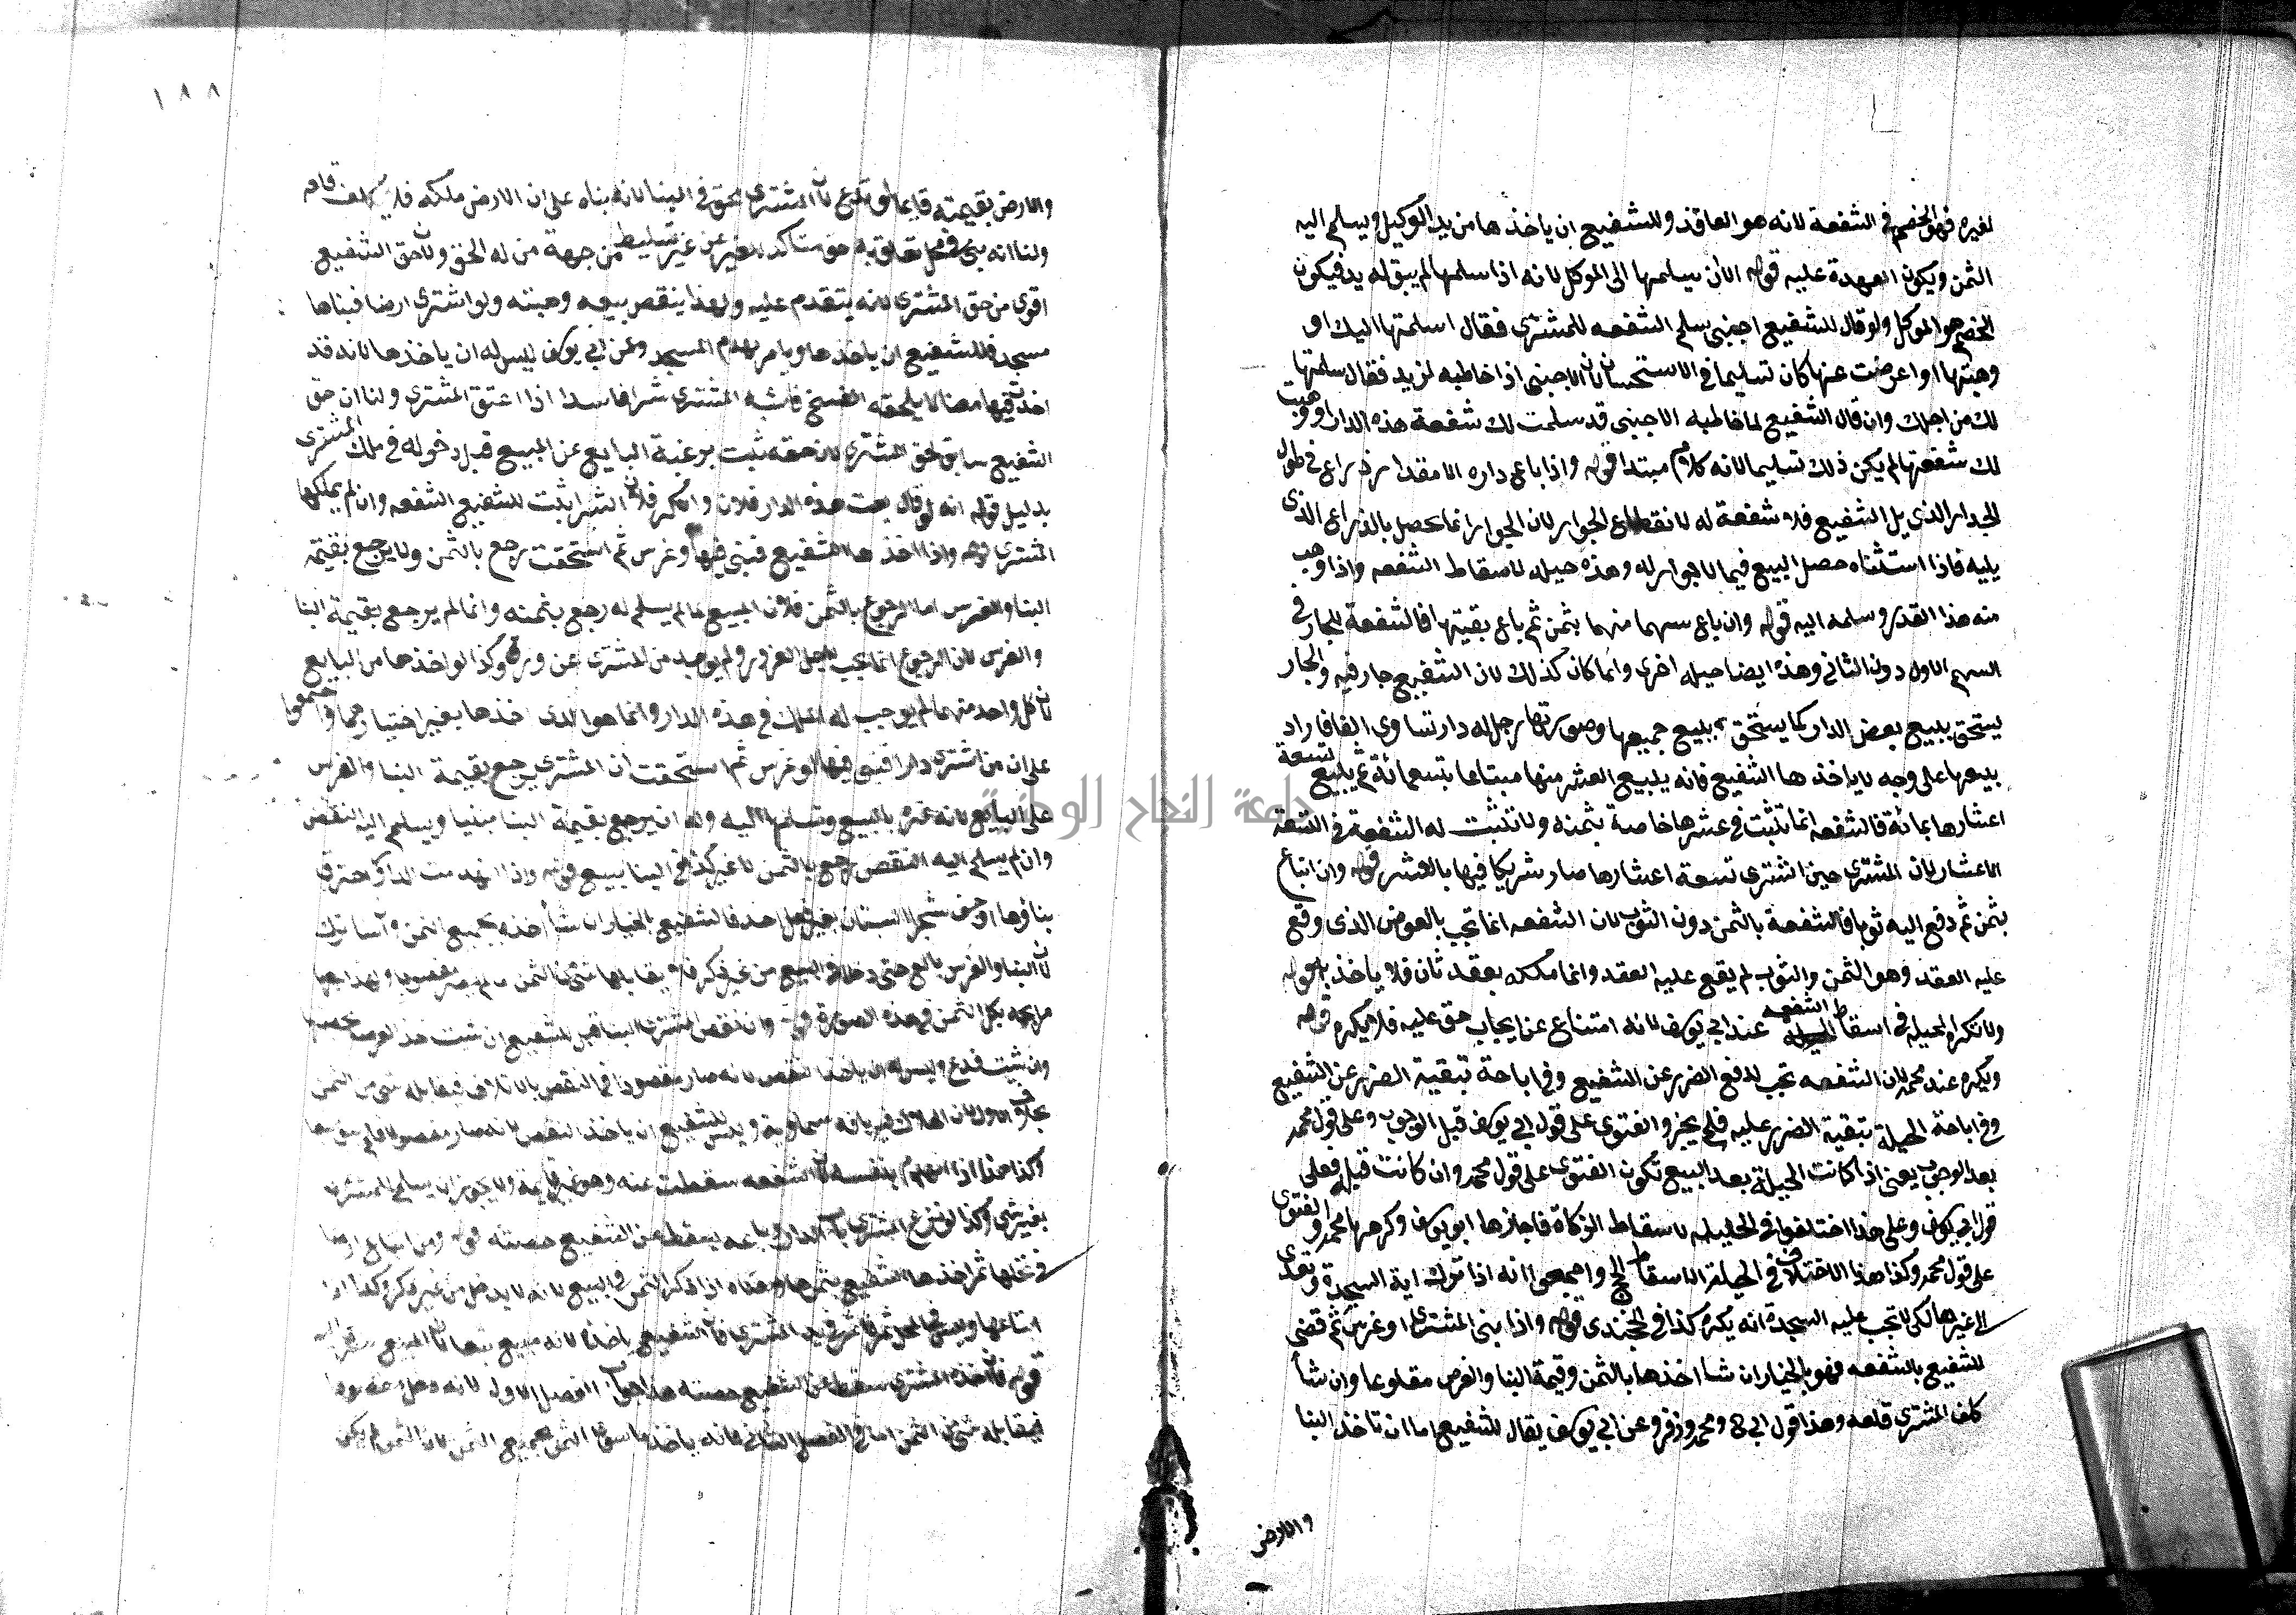 لغيره فهو الخصم في الشفعة لانه هو العاقد وللشفيع ان ياخذها من يد الوكيل ويسلم اليه
الثمن ويكون العهدة عليه قوله الا ان يسلمها الى الموكل لانه اذا سلمها لم يبق له يد فيكون
الخصم هو الموكل ولو قال للشفيع اجنبي سلم الشفعه للمشتري فقال اسلمتها اليك او
وهبتها او اعرضت عنها كان تسليما في الاستحسان لان الاجنبي اذا خاطبه لزيد فقال سلمتها
لك من اجلك وان قال الشفيع لما خاطبه الاجنبي قد سلمت لك شفعة هذه الدار او وهبت
لك شفعتها لم يكن ذلك تسليما لانه كلام مبتدا قوله واذا باع داره الا مقدار ذراع في طول
الجدار الذي يلي الشفيع فلا شفعة له لانقطاع الجوار لان الجوار انما يحصل بالذراع الذي
يليه فاذا استثناه حصل البيع فيما لا جوار له وهذه حيله لاسقاط الشفعه واذا وهب
منه هذا القدر وسلمه اليه قوله وان باع سهما منهما بثمن ثم باع بقيتها فالشفعة للجار في
السهم الاول دون الثاني وهذه ايضا حيله اخرى وانما كان كذلك لان الشفيع جار فيه والجار
يستحق ببيع بعض الدار كما يستحق ببيع جميعها وصورتها رجل له دار تساوي الفا فاراد
بيعها على وجه لا ياخذها الشفيع فانه يبيع العشر منها مشاعا بتسعمائة ثم يبيع تسعة
اعشارها بمائة فالشفعه انما تثبت في عشرها خاصة بثمنه ولا تثبت له الشفعة في التسعة
الاعشار لان المشتري حين اشترى تسعة اعشارها صار شريكا فيها بالعشر قوله وان ابتاع
بثمن ثم دفع اليه ثوبا فالشفعة بالثمن دون الثوب لان الشفعه انما تجب بالعوض الذي وقع
عليه العقد وهو الثمن والثوب لم يقع عليه العقد وانما ملكه بعقد ثان فلا ياخذ به قوله
ولا تكره الحيله في اسقاط الشفعه عند ابي يوسف لانه امتناع عن ايجاب حق عليه فلا يكره قوله
ويكره عند محمد لان الشفعه تجب لدفع الضرر عن الشفيع وفي اباحة تبقية الضرر عن الشفيع
وفي اباحة الحيلة تبقية الضرر عليه فلم يجز والفتوى على قول ابي يوسف قبل الوجوب وعلى قول محمد
بعد الوجوب يعني اذا كانت الحيلة بعد البيع تكون الفتوى على قول محمد وان كانت قبله فعلى
قول ابي يوسف وعلى هذا اختلفوا في الحيله لاسقاط الزكاة فاجازها ابو يوسف وكرهها محمد والفتوى
على قول محمد وكذا هذا الاختلاف في الحيلة لاسقاط الحج واجمعوا انه اذا ترك اية السجدة وتعدى
الى غيرها لكي لا تجب عليه السجدة انه يكره كذا في الخجندي قوله واذا بنى المشتري او غرس ثم قضى
للشفيع بالشفعه فهو بالخيار ان شا اخذها بالثمن وقيمة البنا والغرس مقلوعا وان شا
كلف المشتري قلعه وهذا قول ابي ح ومحمد وزفر وعن ابي يوسف يقال للشفيع اما ان تاخذ البنا
والارض
١٨٨
والارض بقيمته قايما او تدع لان المشتري محق في البنا لانه بناه على ان الارض ملكه فلا يكلف قلعه
ولنا انه بنى في محل تعلق به حق متاكد للغير عن غير تسليط من جهة من له الحق ولان حق الشفيع
اقوى من حق المشتري لانه يتقدم عليه ولهذا ينقض بيعه وهبته ولو اشترى ارضا فبناها
مسجدا فللشفيع ان ياخذها ويامر بهدم المسجد وعن ابي يوسف ليس له ان ياخذها لانه قد
احدث فيها معنا لا يلحقه الفسخ فاشبه المشتري شرا فاسدا اذا اعتق المشتري ولنا ان حق
الشفيع سابق لحق المشتري لان حقه ثبت برغبة البايع عن المبيع قبل دخوله في ملك المشتري
بدليل قوله انه لو قال بعت هذه الدار فلان وانكر فلان الشرا ثبت للشفيع الشفعه وان لم يملكها
المشتري قوله واذا اخذها الشفيع فبنى فيها او غرس ثم استحقت رجع بالثمن ولا يرجع بقيمة
البنا والغرس اما الرجوع بالثمن فلان المبيع لما لم يسلم له رجع بثمنه وانما لم يرجع بقيمة البنا
والغرس لان الرجوع انما يجب لاجل الغرور ولم يوجد من المشتري غرور وكذا لو اخذها من البايع
لان كل واحد منهما لم يوجب له الملك في هذه الدار وانما هو الذي اخذها بغير اختيارهما واجمعوا
على ان من اشترى دارا فبنى فيها او غرس ثم استحقت ان المشتري يرجع بقيمة البنا والغرس
على البايع لانه غره بالبيع وتسليمها اليه وله ان يرجع بقيمة البنا مبنيا ويسلم اليه النقض
وان لم يسلم اليه النقض رجع بالثمن لا غير كذا في الينابيع قوله واذا انهدمت الدار او احترق
بناؤها او جف شجر البستان بغير فعل احد فالشفيع بالخيار ان شا اخذه بجميع الثمن وان شا ترك
لان البنا والغرس تابع حتى دخلا في البيع من غير ذكر فلا يقابلهما شي من الثمن ما لم يصر مقصودا ولهذا يبيعها
مرابحة بكل الثمن في هذه الصورة قوله وان نقض المشتري البنا قيل للشفيع ان شيت خذ العرصه بحصتها
وان شيت فدع وليس له ان ياخذ النقض لانه صار مقصودا في النقض بالاتلاف فيقابله شي من الثمن
بخلاف الاول لان الهلاك فيه بافة سماوية وليس للشفيع ان ياخذ النقض لانه صار مفصولا فلم يبق تبعا
وكذا هذا اذا انهدم بنفسه لان الشفعه سقطت عنه وهو عين قايمة ولا يجوز ان يسلم للمشتري
بغير شي وكذا لو نزع المشتري باب الدار وباعه يسقط عن الشفيع حصته قوله ومن ابتاع ارضا
في نخلها ثمر اخذها الشفيع بثمرها معناه اذا ذكر الثمر في البيع لانه لا يدخل من غير ذكر وكذا اذا
ابتاعها وليس في النخل ثمر فاثمر في يد المشتري فان الشفيع ياخذه لانه مبيع تبعا لان المبيع سرى اليه
قوله فان اخذه المشتري سقط عن الشفيع حصته هذا جواب الفصل الاول لانه دخل
فيقابله شي من الثمن اما في الفصل الثاني فانه ياخذ ما سوى الثمر بجميع الثمن لان الثمر لم يكن
جامعة النجاح الوطنية